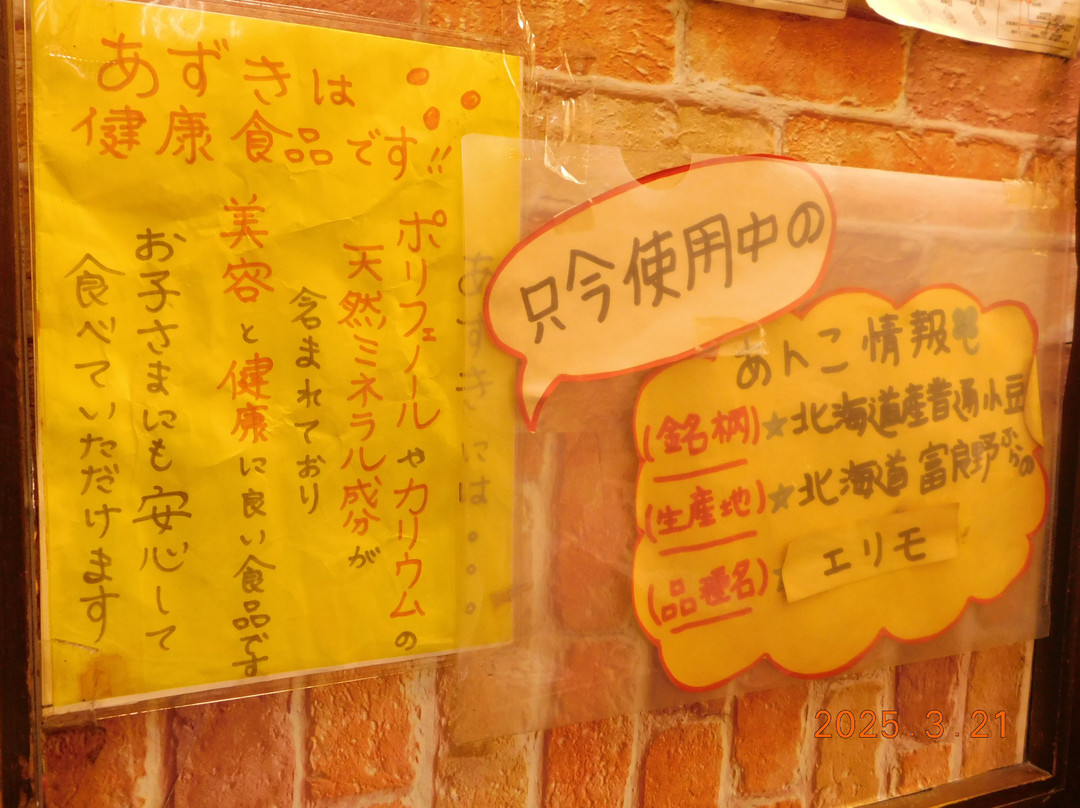 あずきは
健康食品です!!
あずきには。。。
ポリフェノールやカリウムの
天然ミネラル成分が
含まれており
美容と健康に良い食品です
お子さまにも安心して
食べていただけます
只今使用中の
あんこ情報
(銘柄)★北海道産普通小豆
(生産地)★北海道富良野ふらの
(品種名)★エリモ
2025.3.21